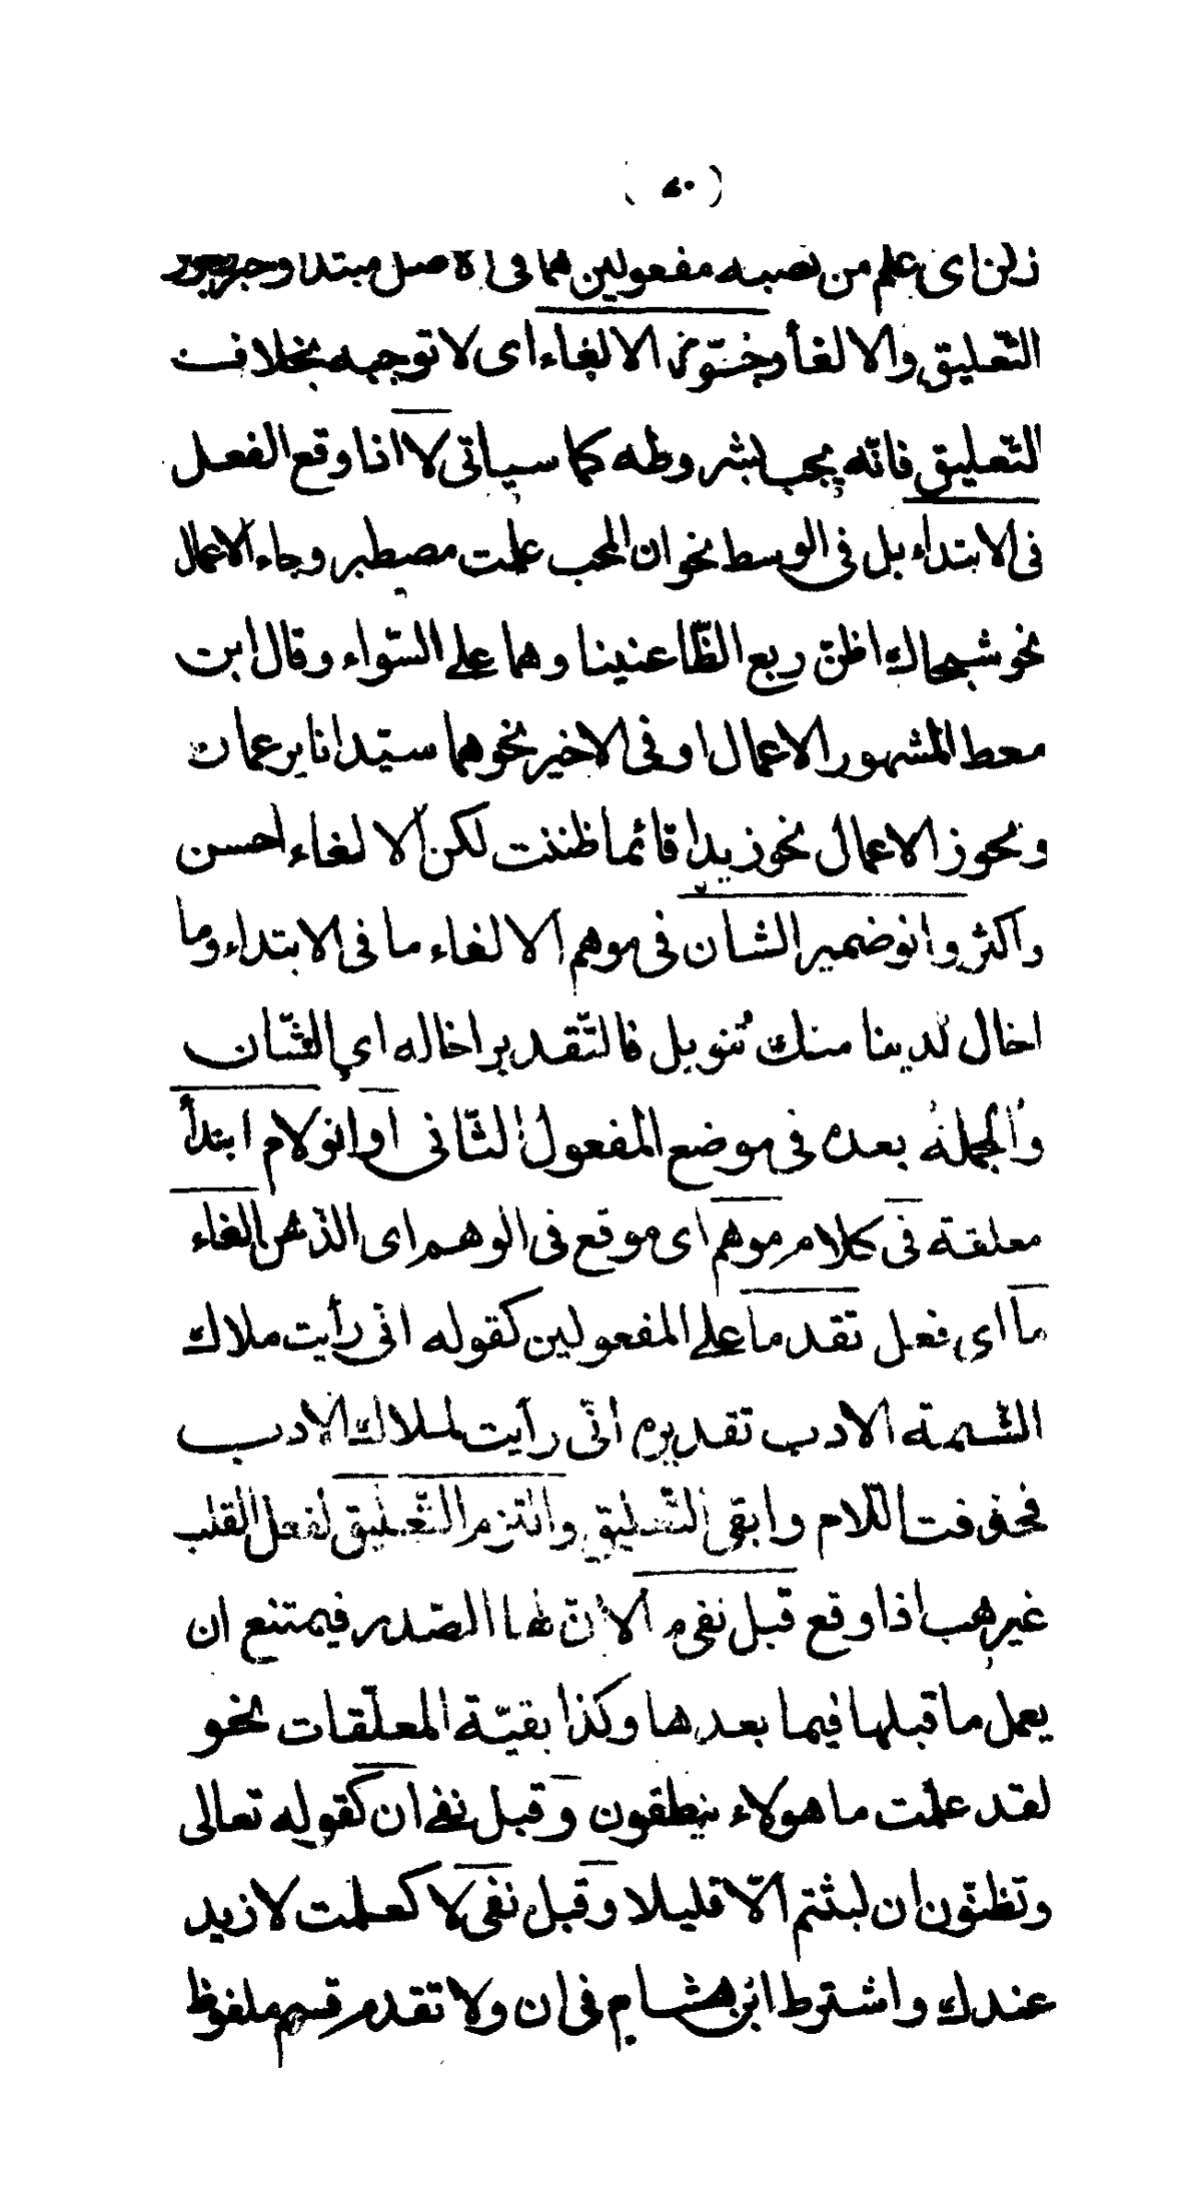 زكن اى علم من نصبه مفعولين هما فى الاصل مبتدا وخبر
التّعليق والالغأ وجَوّز الالغاء اى لا توجبه بخلاف
التّعليق فانّه يجب بشروطه كما سياتى لا اذا وقع الفعل
فى الابتداء بل فى الوسط نحو ان المحب علمت مصطبر وجاء الاعمال
نحو شجاك اظنّ ربع الظّاعنينا وهما على السّواء وقال ابن
معط المشهور الاعمال او فى الاخير نحو هما سيّدانا يزعمان
ويجوز الاعمال نحو زيدا قائما ظننت لكن الالغاء احسن
واكثر وانو ضمير الشان فى موهم الالغاء ما فى الابتداء وما
اخال لدينا منك تنويل فالتّقدير اخاله اي الشّان
والجملة بعده فى موضع المفعول الثّانى او انو لام ابتدأ
معلقة فى كلام موهم اى موقع فى الوهم اى الذّهن الغاء
ما اى فعل تقدما على المفعولين كقوله انّى رأيت ملاك
الشّيمة الادب تقديره انّى رأيت لملاك الادب
فحذفت اللّام وابقى التّعليق والتزم التّعليق لفعل القلب
غير هب اذا وقع قبل نفى ما لانّ لها الصّدر فيمتنع ان
يعمل ما قبلها فيما بعدها وكذا بقيّة المعلّقات نحو
لقد علمت ما هولاء ينطقون وقبل نفى ان كقوله تعالى
وتظنّون ان لبثتم الّا قليلا وقبل نفى لا كعلمت لا زيد
عندك واشترط ابن هشام فى ان ولا تقدم قسم ملفوظ